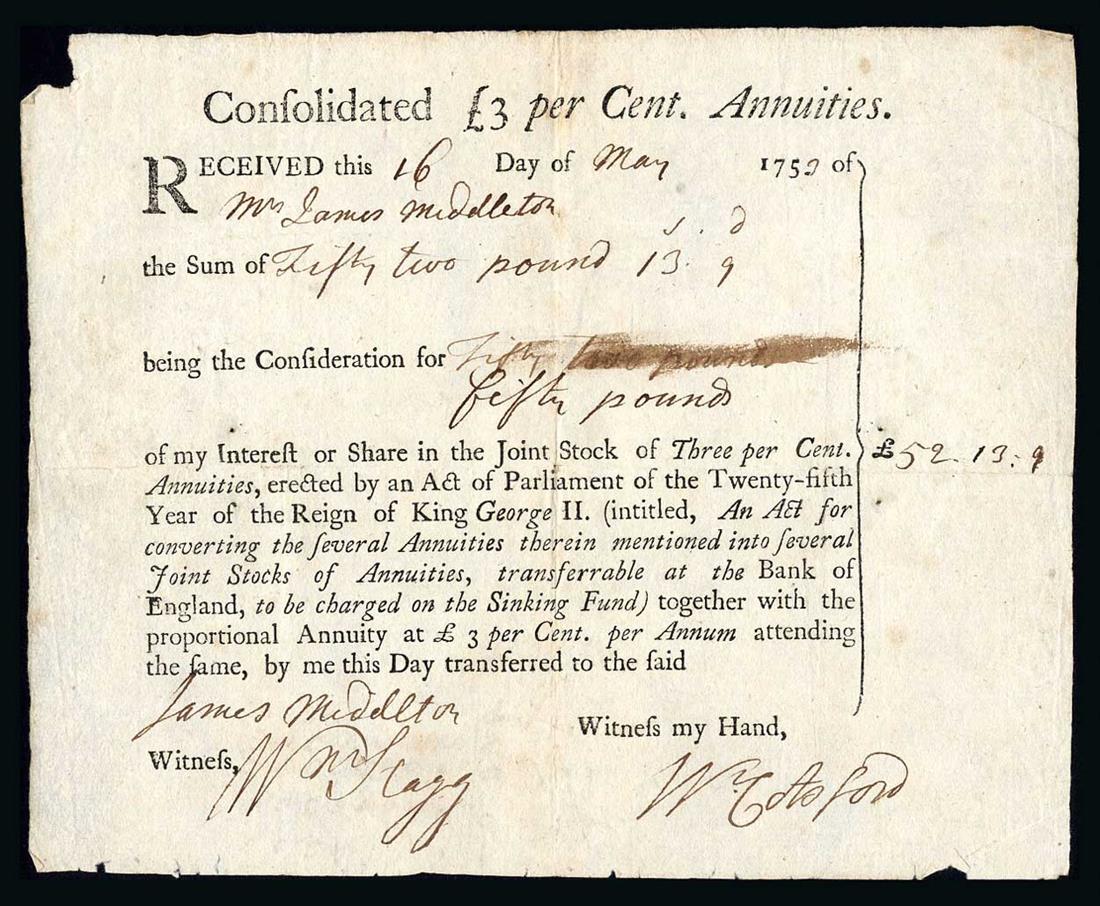 Conſolidated £3 per Cent. Annuities.
RECEIVED this 16 Day of May 1753 of
Mrs James Middleton
s. d
the Sum of Fifty two pound 13. 9
being the Conſideration for Fifty two pounds
fifty pounds
of my Intereſt or Share in the Joint Stock of Three per Cent.
£52. 13. 9
Annuities, erected by an Act of Parliament of the Twenty-fifth
Year of the Reign of King George II. (intitled, An Act for
converting the ſeveral Annuities therein mentioned into ſeveral
Joint Stocks of Annuities, transferrable at the Bank of
England, to be charged on the Sinking Fund) together with the
proportional Annuity at £ 3 per Cent. per Annum attending
the ſame, by me this Day transferred to the ſaid
James Middleton
Witneſs my Hand,
Witneſs, Wm Stagg
Wm